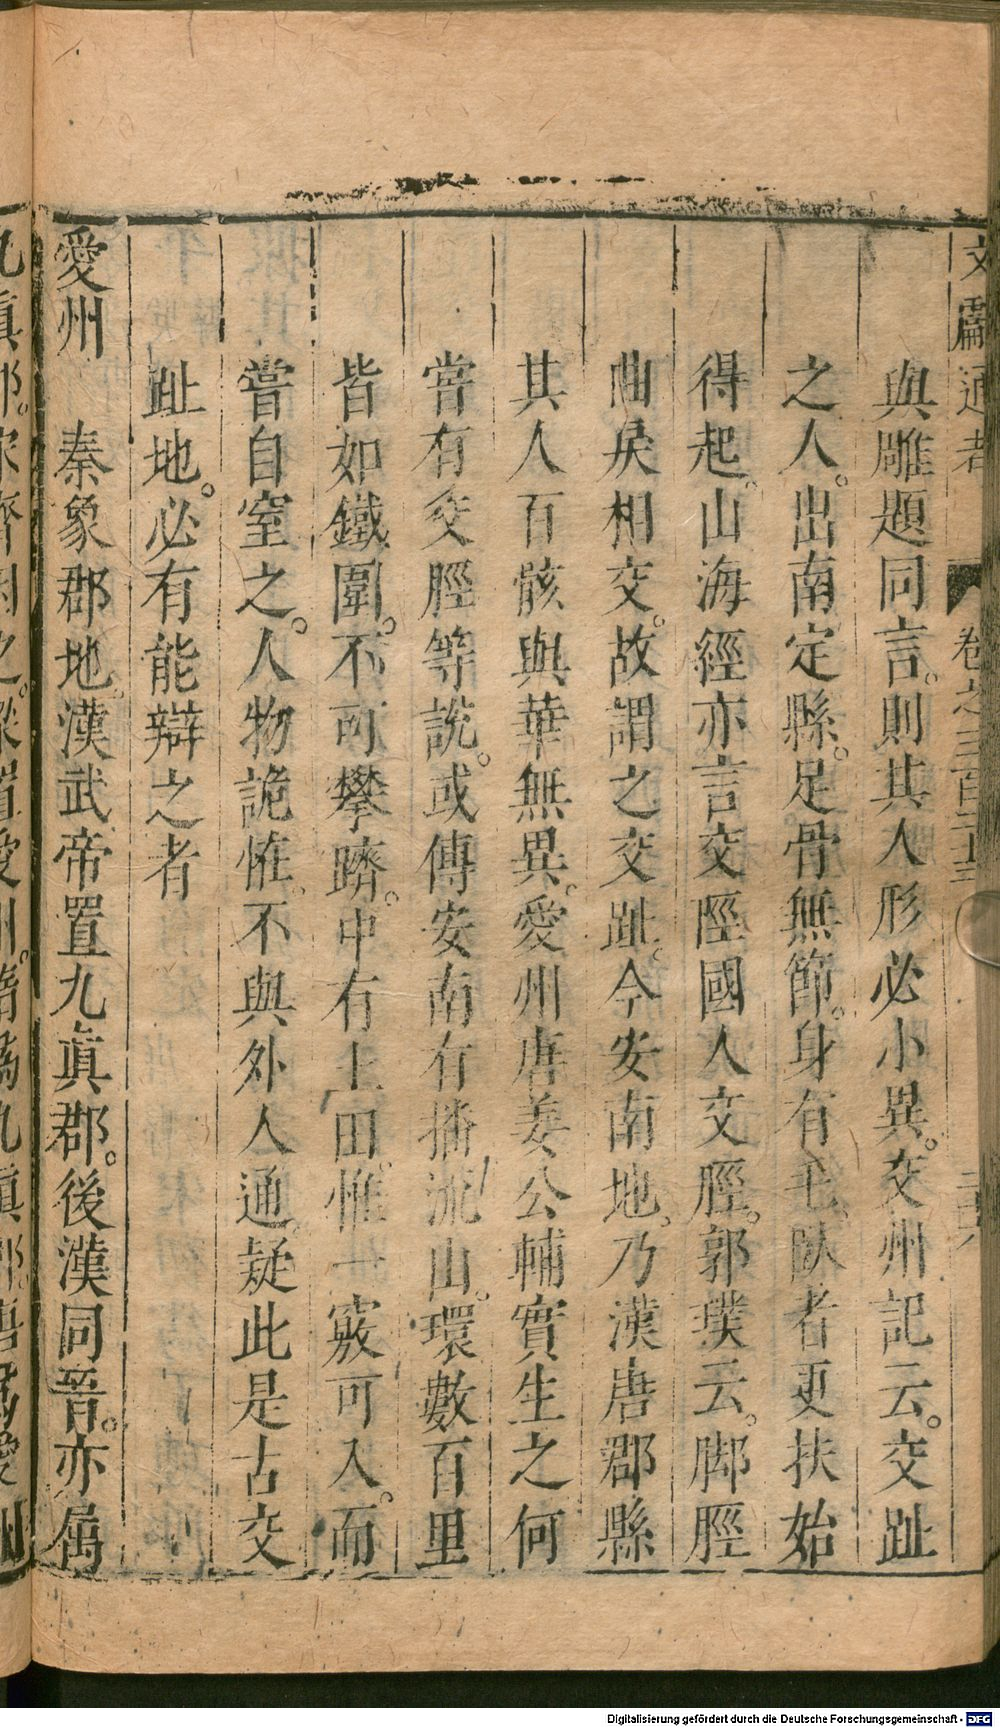 文獻通考 卷之三百二十三
與雕題同言。則其人形必小異。交州記云。交趾
之人。出南定縣。足骨無節。身有毛。臥者更扶始
得起。山海經亦言交脛國人交脛。郭璞云。脚脛
曲戾相交。故謂之交趾。今安南地。乃漢唐郡縣
其人百骸與華無異。愛州唐姜公輔實生之何
嘗有交脛等說。或傳安南有播流山。環數百里
皆如鐵圍。不可攀躋。中有土田。惟一竅可入。而
嘗自窒之。人物詭怪。不與外人通。疑此是古交
趾地。必有能辯之者
愛州 秦象郡地。漢武帝置九真郡。後漢同晉。亦屬
Digitalisierung gefördert durch die Deutsche Forschungsgemeinschaft - DFG